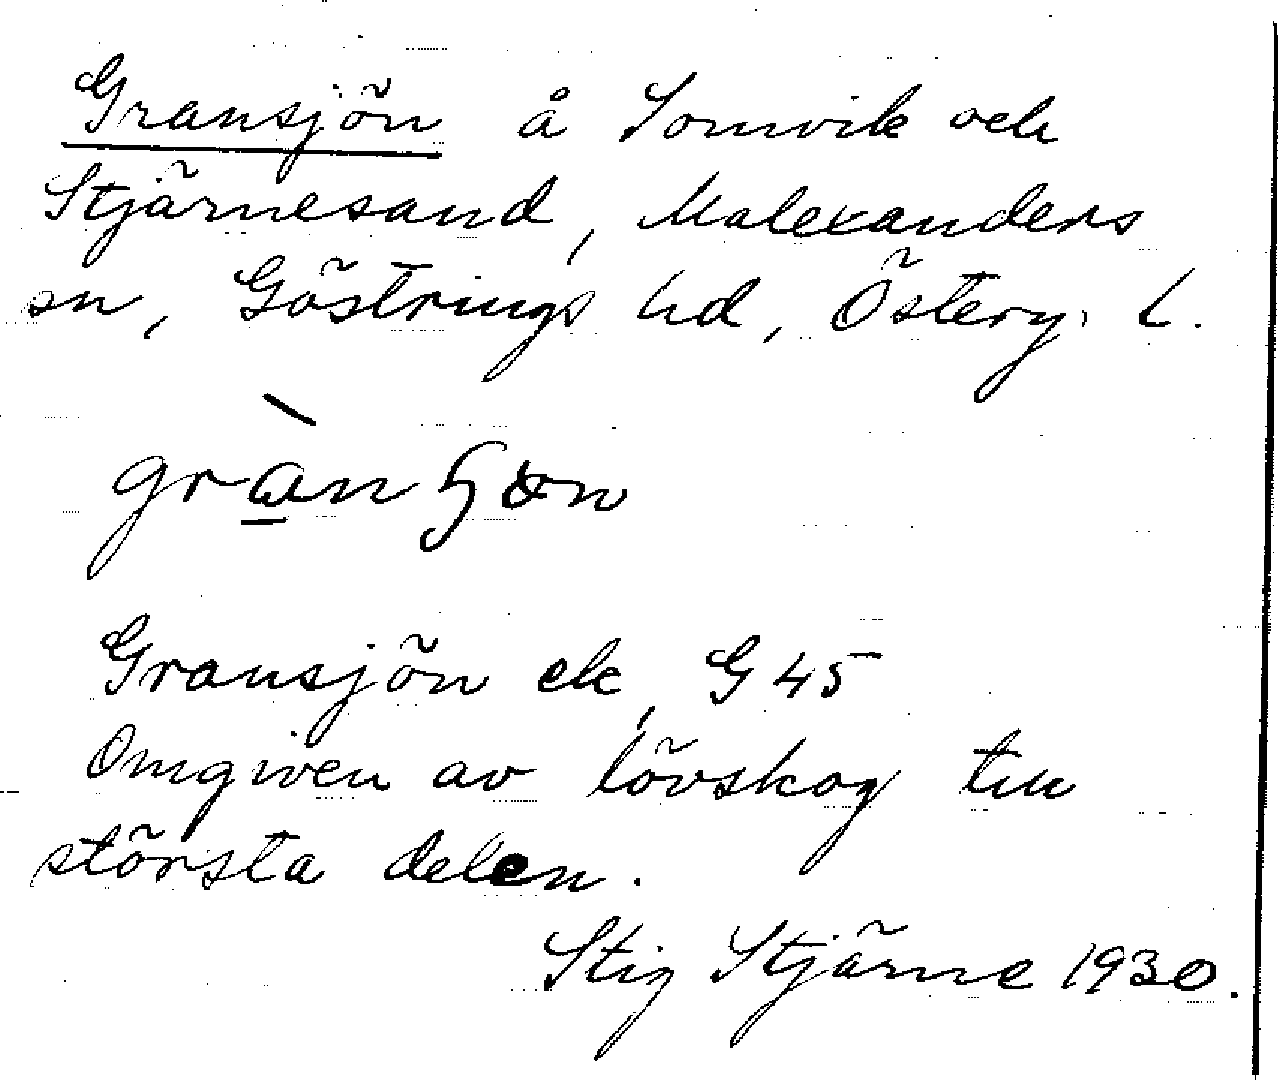 Gransjön å Somvik och
Stjärnesand, Malexanders
sn, Göstrings hd, Österg. l.
grànʃɷn
Gransjön ek, G 45
Omgiven av lövskog till
största delen.
Stig Stjärne 1930.